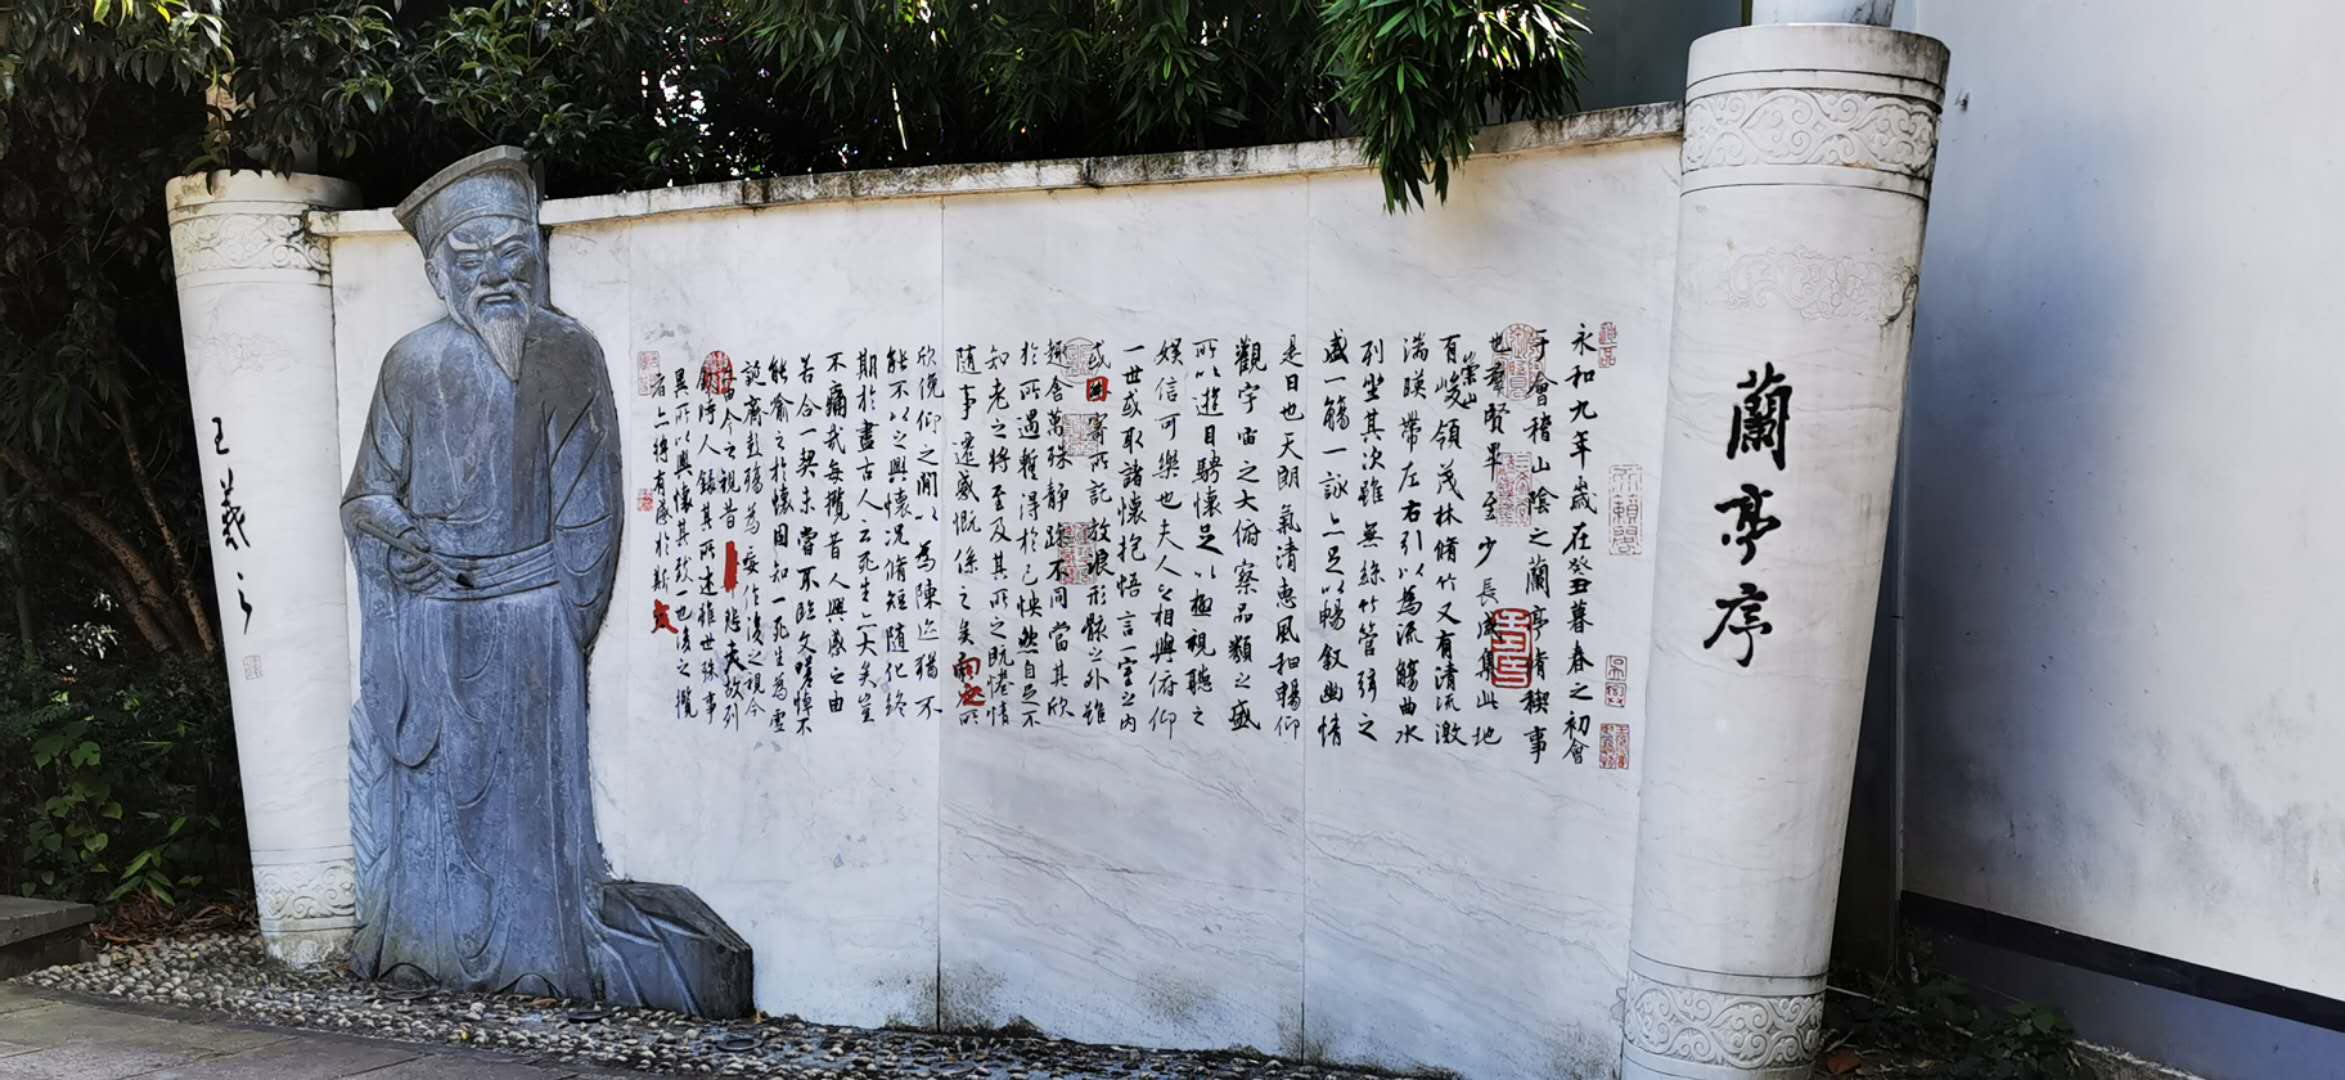 蘭亭序
永和九年歲在癸丑暮春之初會
于會稽山陰之蘭亭脩稧事
也羣賢畢至少長咸集此地
有崇山峻領茂林脩竹又有清流激
湍暎帶左右引以為流觴曲水
列坐其次雖無絲竹管弦之
盛一觴一詠亦足以暢叙幽情
是日也天朗氣清惠風和暢仰
觀宇宙之大俯察品類之盛
所以遊目騁懷足以極視聽之
娛信可樂也夫人之相與俯仰
一世或取諸懷抱悟言一室之內
或因寄所託放浪形骸之外雖
趣舍萬殊靜躁不同當其欣
於所遇蹔得於己怏然自足不
知老之將至及其所之既惓情
隨事遷感慨係之矣向之所
欣俛仰之間以為陳迹猶不
能不以之興懷況脩短隨化終
期於盡古人云死生亦大矣豈
不痛哉每攬昔人興感之由
若合一契未嘗不臨文嗟悼不
能喻之於懷固知一死生為虛
誕齊彭殤為妄作後之視今
由今之視昔悲夫故列
叙時人錄其所述雖世殊事
異所以興懷其致一也後之攬
者亦將有感於斯文
王羲之